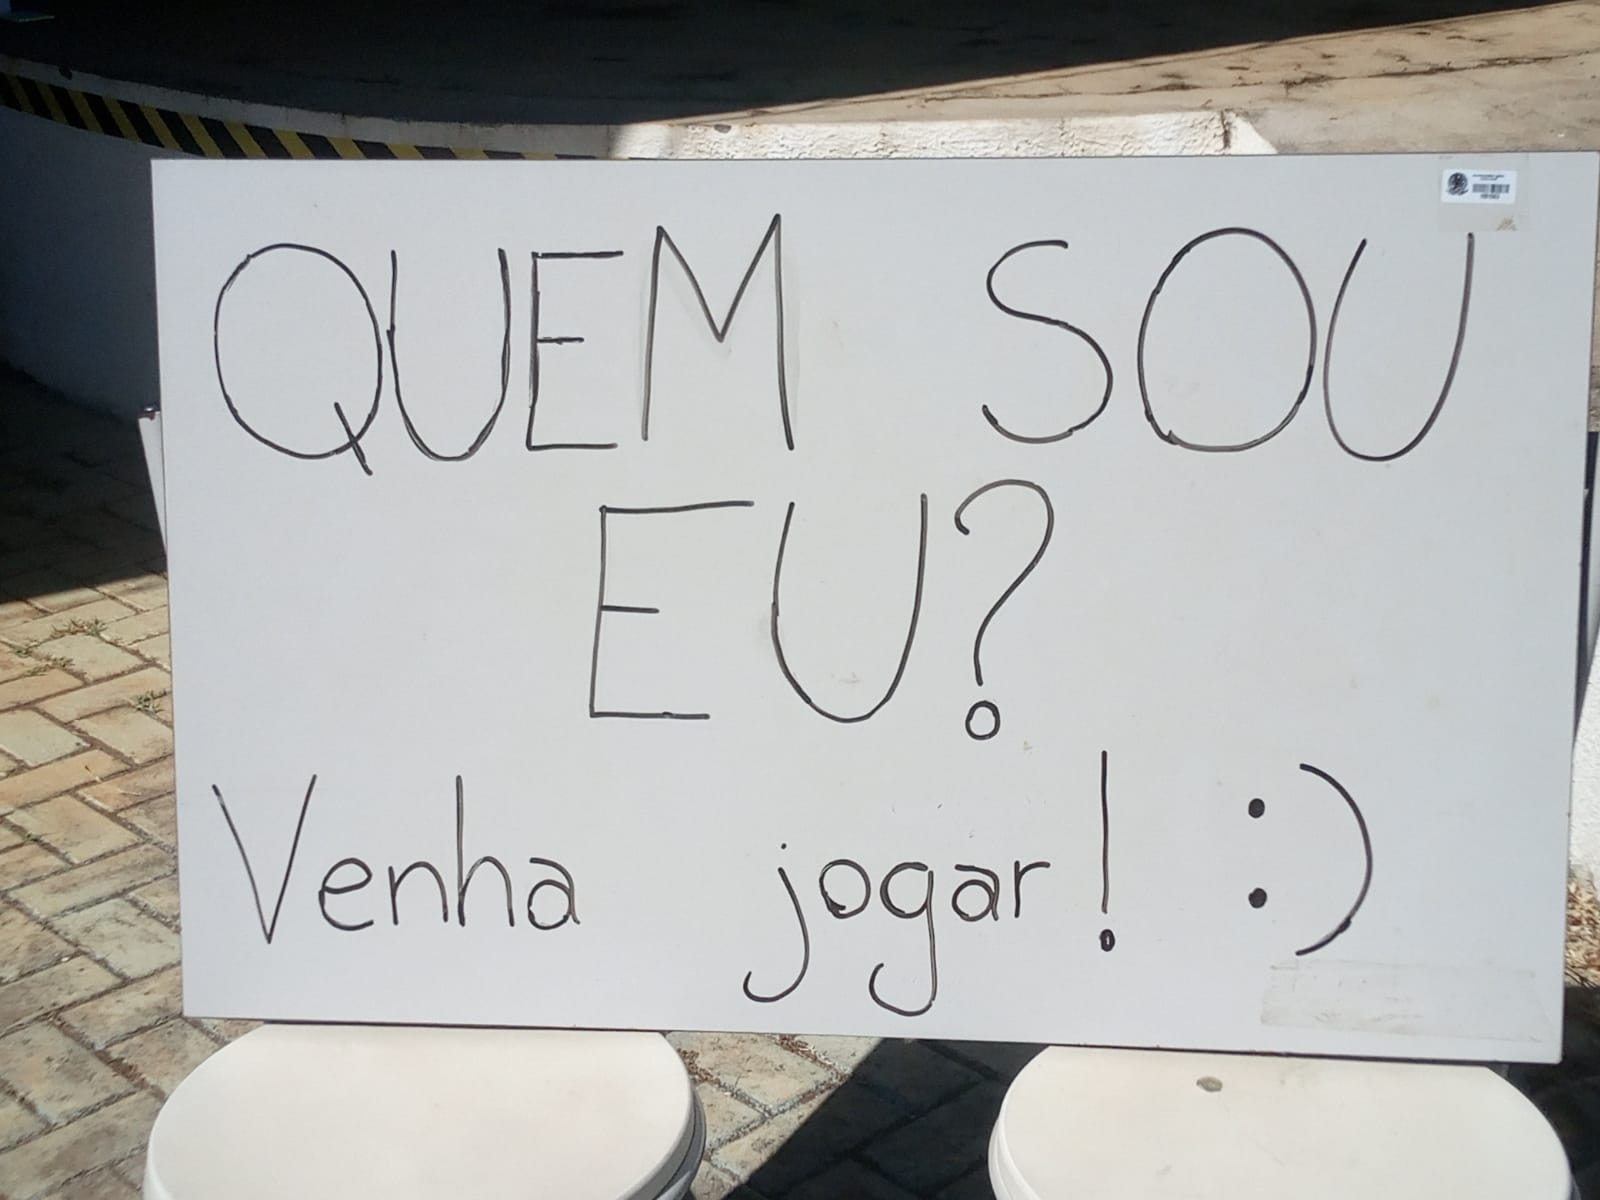 QUEM SOU
EU?
Venha jogar! :)